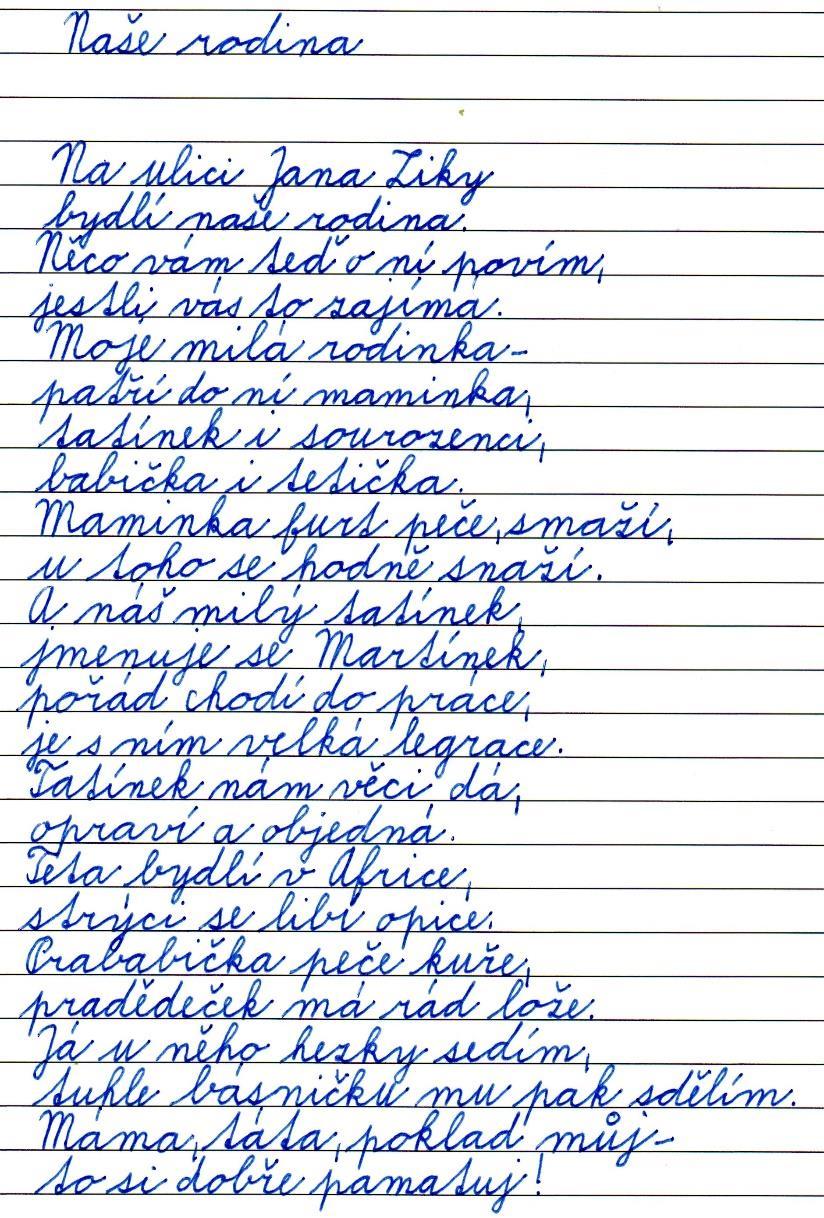 Naše rodina
Na ulici Jana Ziky
bydlí naše rodina.
Něco vám teď o ní povím,
jestli vás to zajíma.
Moje milá rodinka-
patří do ní maminka,
tatínek i sourozenci,
babička i tetička.
Maminka furt peče, smaží,
u toho se hodně snaží.
A náš milý tatínek,
jmenuje se Martínek,
pořád chodí do práce,
je s ním velká legrace.
Tatínek nám věci dá,
opraví a objedná.
Teta bydlí v Africe,
strýci se libí opice.
Prababička peče kuře,
pradědeček má rád lože.
Já u něho hezky sedím,
tuhle básničku mu pak sdělím.
Máma, táta, poklad můj-
to si dobře pamatuj!